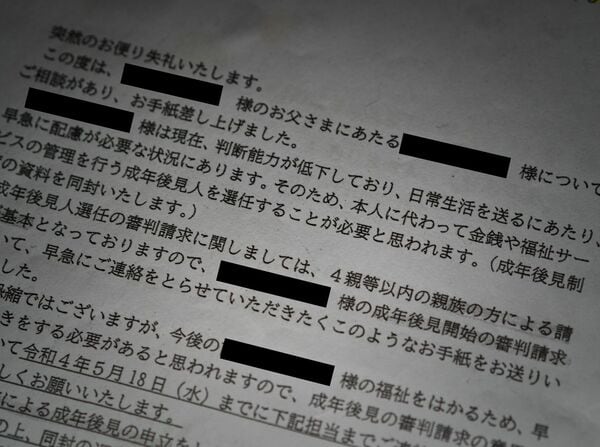 突然のお便り失礼いたします。
この度は、 様のお父さまにあたる 様について
ご相談があり、お手紙差し上げました。
様は現在、判断能力が低下しており、日常生活を送るにあたり、
早急に配慮が必要な状況にあります。そのため、本人に代わって金銭や福祉サー
ビスの管理を行う成年後見人を選任することが必要と思われます。（成年後見制
の資料を同封いたします。）
成年後見人選任の審判請求に関しましては、４親等以内の親族の方による請
基本となっておりますので、 様の成年後見開始の審判請求
いて、早急にご連絡をとらせていただきたくこのようなお手紙をお送りい
した。
縮ではございますが、今後の 様の福祉をはかるため、早
きをする必要があると思われますので、成年後見の審判請求の
いて令和４年５月18日（水）までに下記担当までご
しくお願いいたします。
による成年後見の申立を
の上、同封の